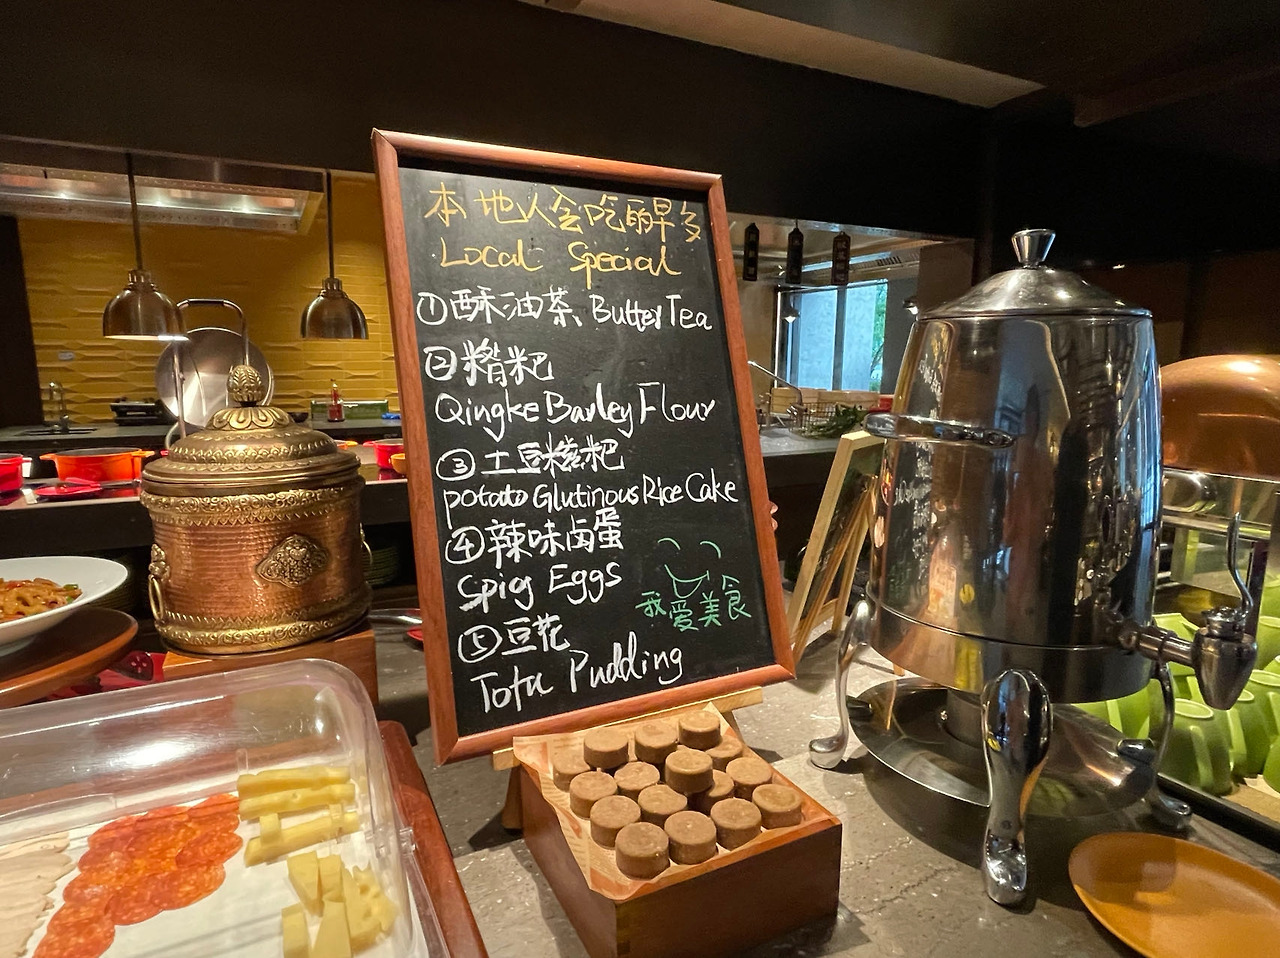 本地人会吃的早
Local Special
①酥油茶、Butter Tea
②糌粑
Qingke Barley Flour
③土豆糍粑
potato Glutinous Rice Cake
④辣味卤蛋
Spig Eggs
⑤豆花
Tofu Pudding
我爱美食